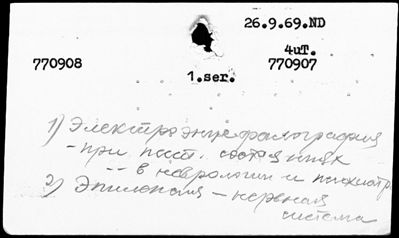 26.9.69.ND
4uT.
770908
770907
1.ser.
1) Электроэнцефалография
- при псит. состояниях
-- в неврологии и психиатр.
2) Эпилепсия - нервная
система